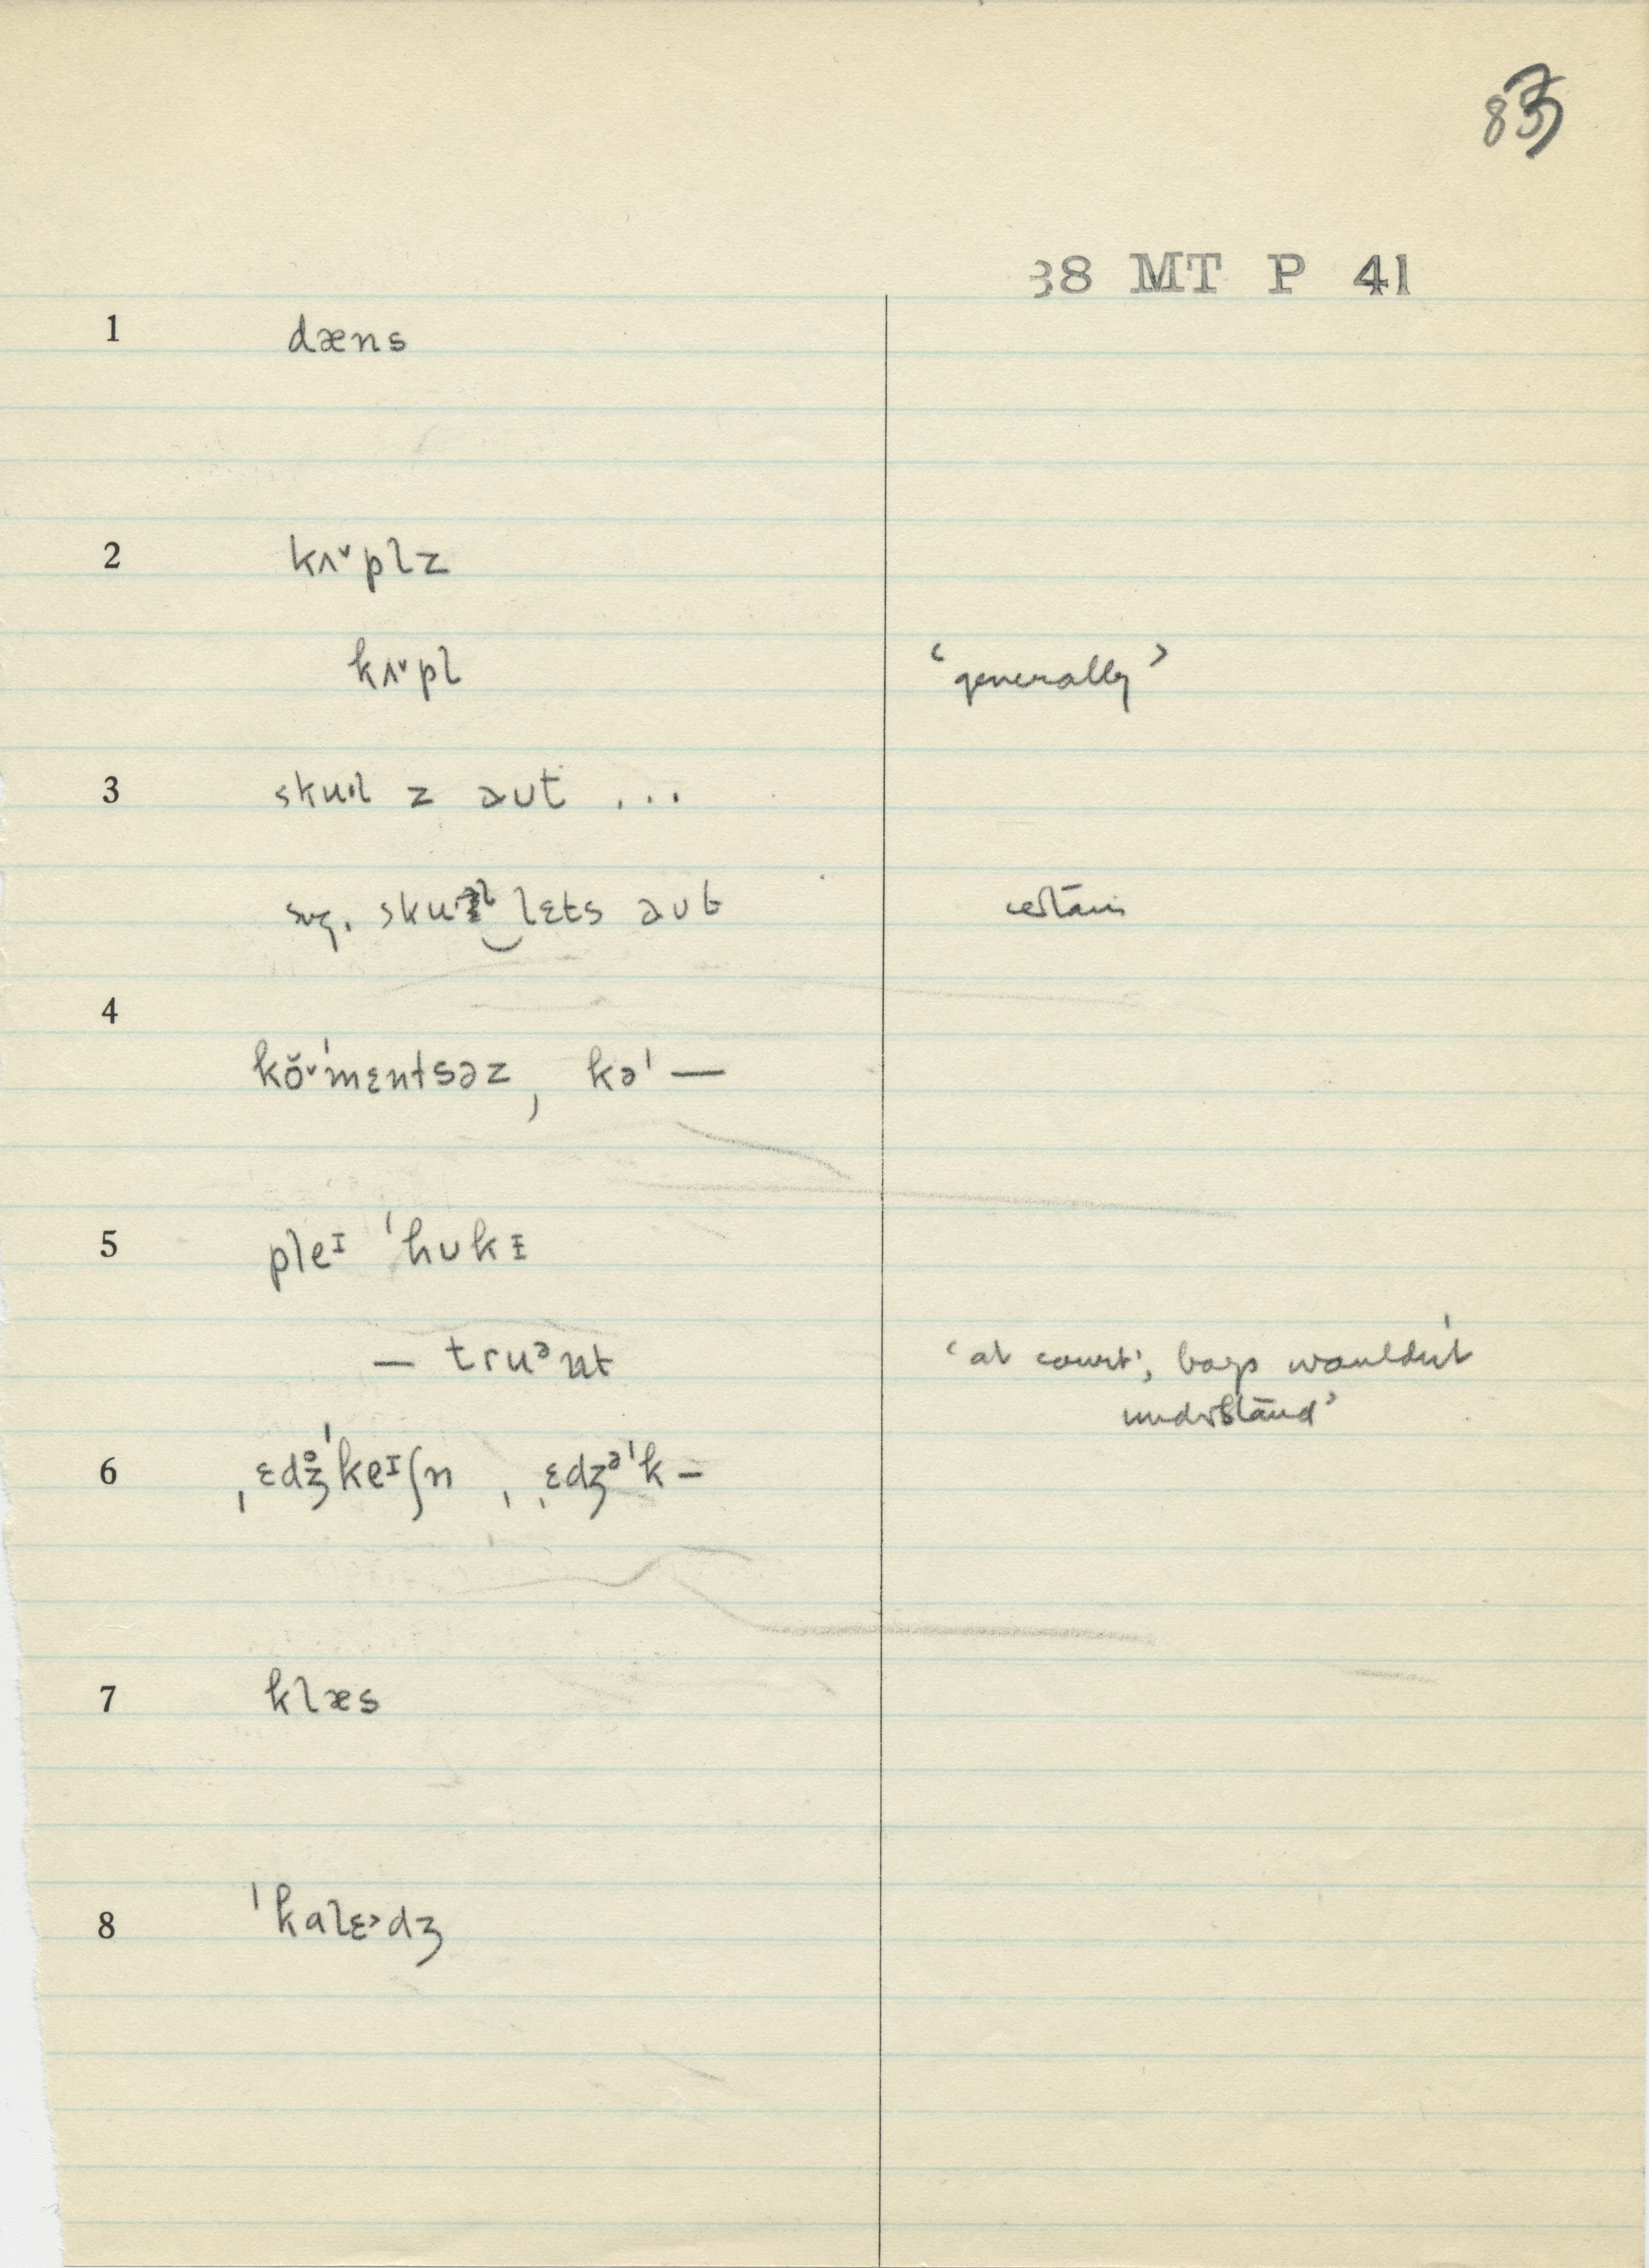 83
38 MT P 41
1 dæns
2 kʌ˅plz
kʌ˅pl ‘generally’
3 sku·l z aut ...
sug. sku·l‿lɛts aut certain
4
kɔ̆˅ˈmɛntsəz, kəˈ—
5 pleᶦ ˈhukɪ
— truᵊnt ‘at court’, boys wouldn't
understand’
6 ˌɛdʒ̊ˈkeᶦʃn, ˌɛdʒᵊˈk–
7 klæs
8 ˈkalɛ˃dʒ